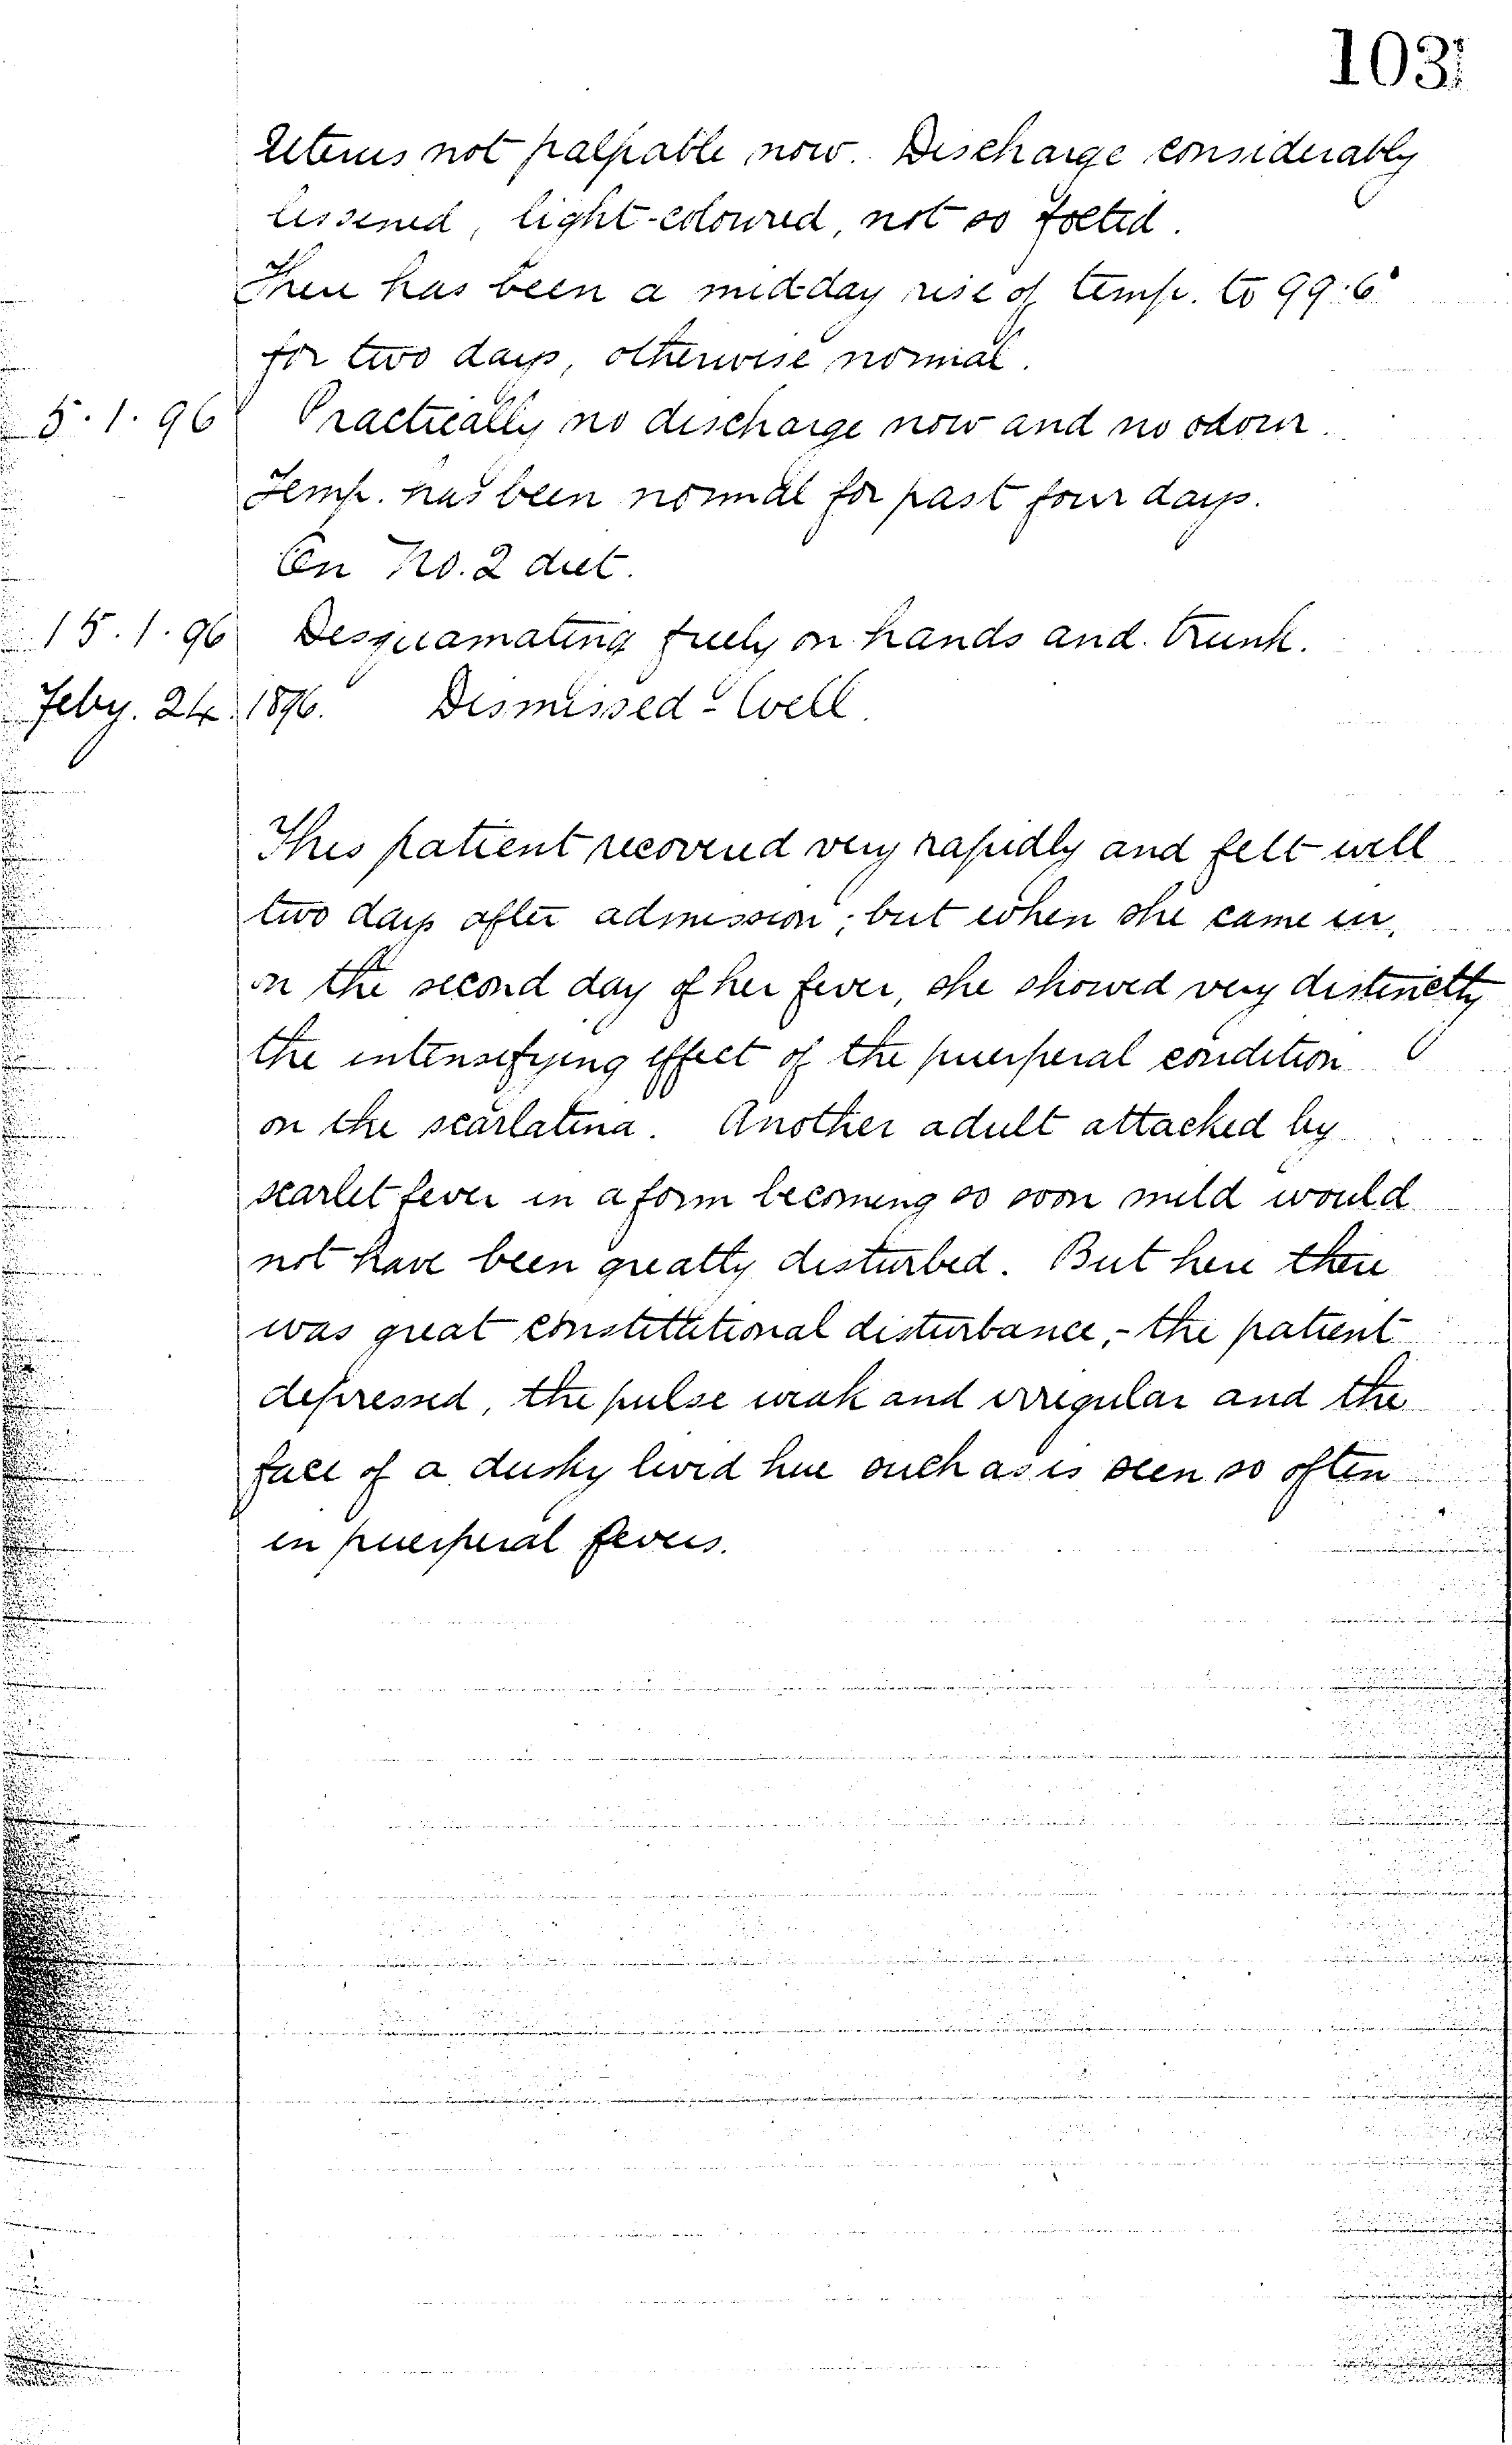 103
Uterus not palpable now. Discharge considerably
lessened, light-coloured, not so foetid.
There has been a mid-day rise of temp. to 99.6°
for two days, otherwise normal.
5.1.96 Practically no discharge now and no odour.
Temp. has been normal for past four days.
On No. 2 diet.
15.1.96 Desquamating freely on hands and trunk.
Feby. 24. 1896. Dismissed - Well.
This patient recovered very rapidly and felt well
two days after admission; but when she came in,
on the second day of her fever, she showed very distinctly
the intensifying effect of the puerperal condition
on the scarlatina. Another adult attacked by
scarlet fever in a form becoming so soon mild would
not have been greatly disturbed. But here there
was great constitutional disturbance, - the patient
depressed, the pulse weak and irregular and the
face of a dusky livid hue such as is seen so often
in puerperal fevers.